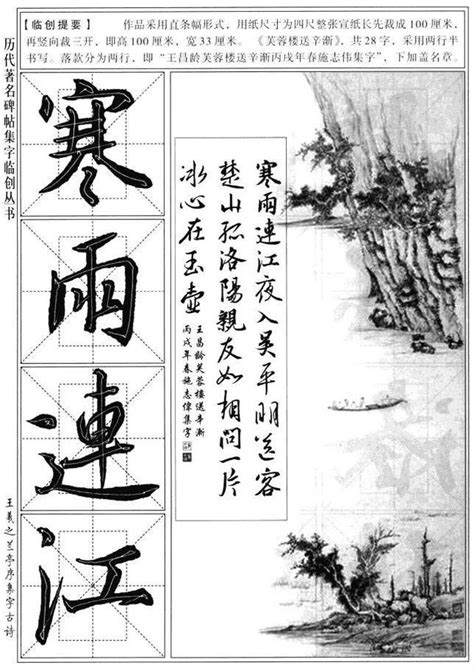 【临创提要】 作品采用直条幅形式，用纸尺寸为四尺整张宣纸长先裁成100厘米，
再竖向裁三开，即高100厘米，宽33厘米。《芙蓉楼送辛渐》，共28字，采用两行半
书写。落款分为两行，即“王昌龄芙蓉楼送辛渐丙戌年春施志伟集字”，下加盖名章。
历代著名碑帖集字临创丛书
王羲之兰亭序集字古诗
寒
雨
連
江
寒雨連江夜入吴平明送客
楚山孤洛陽親友如相問一片
冰心在玉壺
王昌龄芙蓉楼送辛渐
丙戌年春施志偉集字